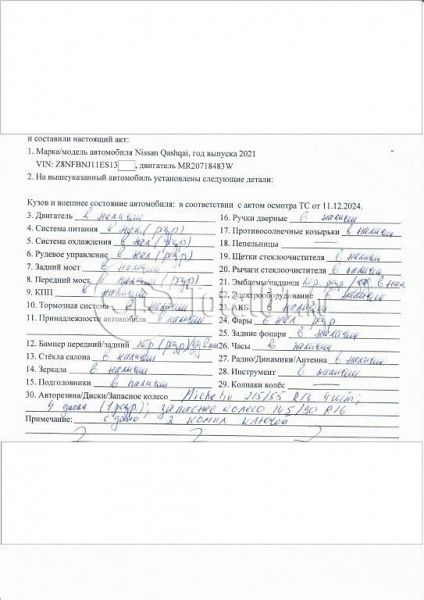 и составили настоящий акт:
1. Марка/модель автомобиля Nissan Qashqai, год выпуска 2021
VIN: Z8NFBNJ11ES13 , двигатель MR20718483W
2. На вышеуказанный автомобиль установлены следующие детали:
Кузов и внешнее состояние автомобиля: в соответствии с актом осмотра ТС от 11.12.2024.
3. Двигатель в наличии
4. Система питания в нал (разр)
5. Система охлаждения в нал (разр)
6. Рулевое управление в нал (разр)
7. Задний мост в наличии
8. Передний мост в нал (разр)
9. КПП в наличии
10. Тормозная система в наличии
11. Принадлежности автомобиля в наличии
12. Бампер передний/задний пер (разр)
13. Стёкла салона в наличии
14. Зеркала в наличии
15. Подголовники в наличии
16. Ручки дверные в наличии
17. Противосолнечные козырьки в наличии
18. Пепельницы —
19. Щетки стеклоочистителя в наличии
20. Рычаги стеклоочистителя в наличии
21. Эмблемы/надписи пер. разр
22. Электрооборудование в наличии
23. АКБ в наличии
24. Фары в нал разр
25. Задние фонари в наличии
26. Часы в наличии
27. Радио/Динамики/Антенна в наличии
28. Инструмент в наличии
29. Колпаки колёс —
30. Авторезина/Диски/Запасное колесо Michelin 215/55 R18 4 шт;
4 диска (1 разр); запасное колесо 145/90 R16
Примечание: сдано 2 компл ключей